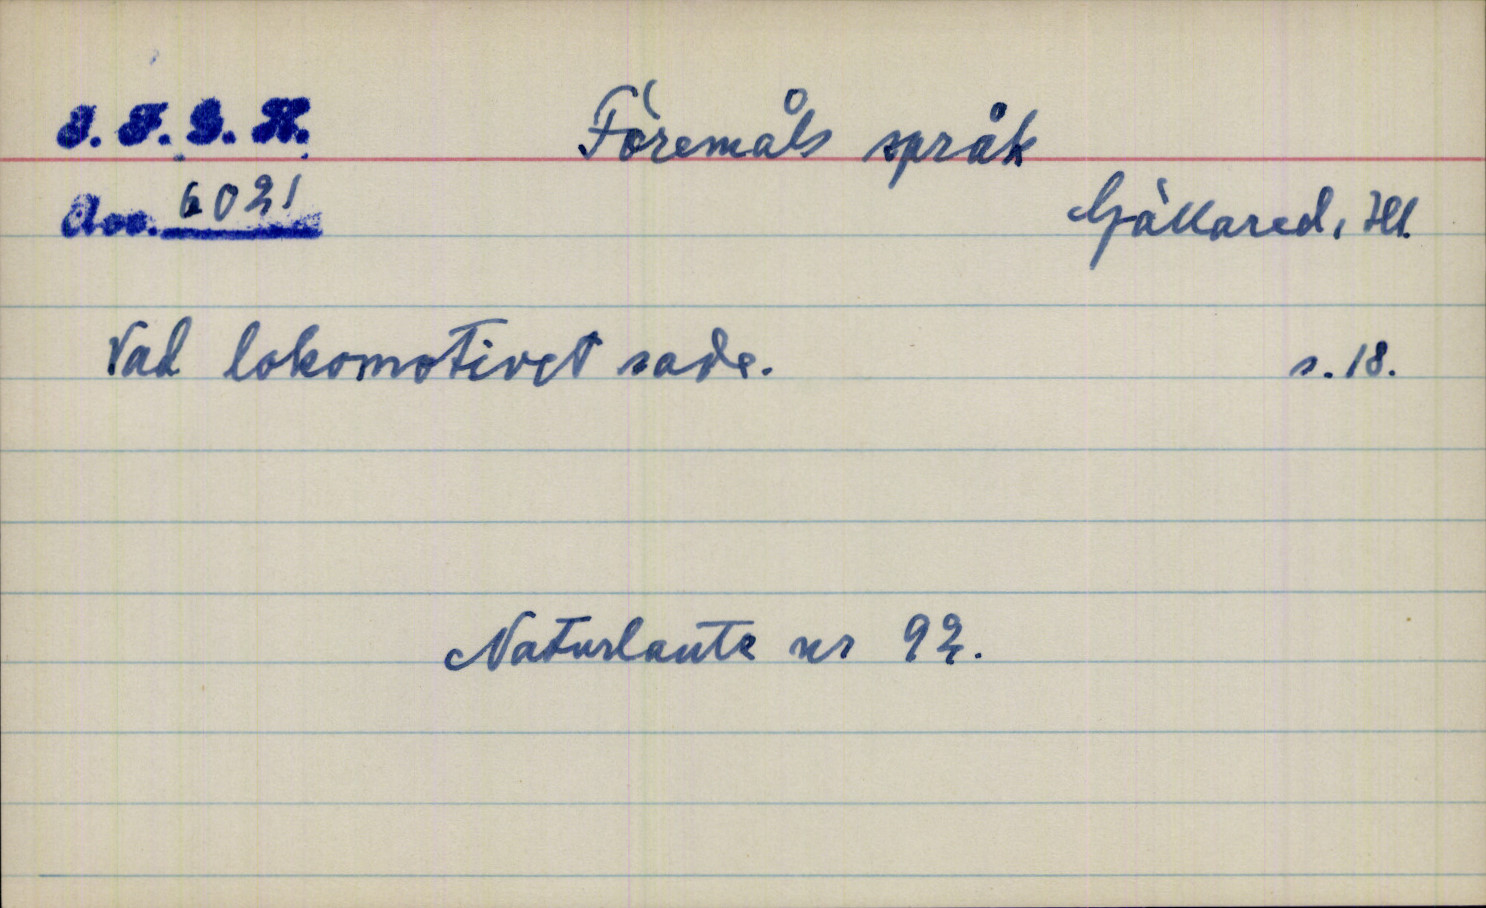 I. F. G. H.
Föremåls språk
Acc. 6021
Gällared, Hl.
Vad lokomotivet sade. s. 18.
Naturlaute nr 92.